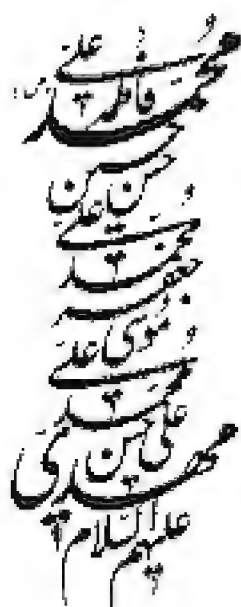 محمد و علی
فاطمه
حسن
حسین
علی و
محمد
جعفر
موسی علی
محمد و
علی حسن
مهدی
علیهم السلام